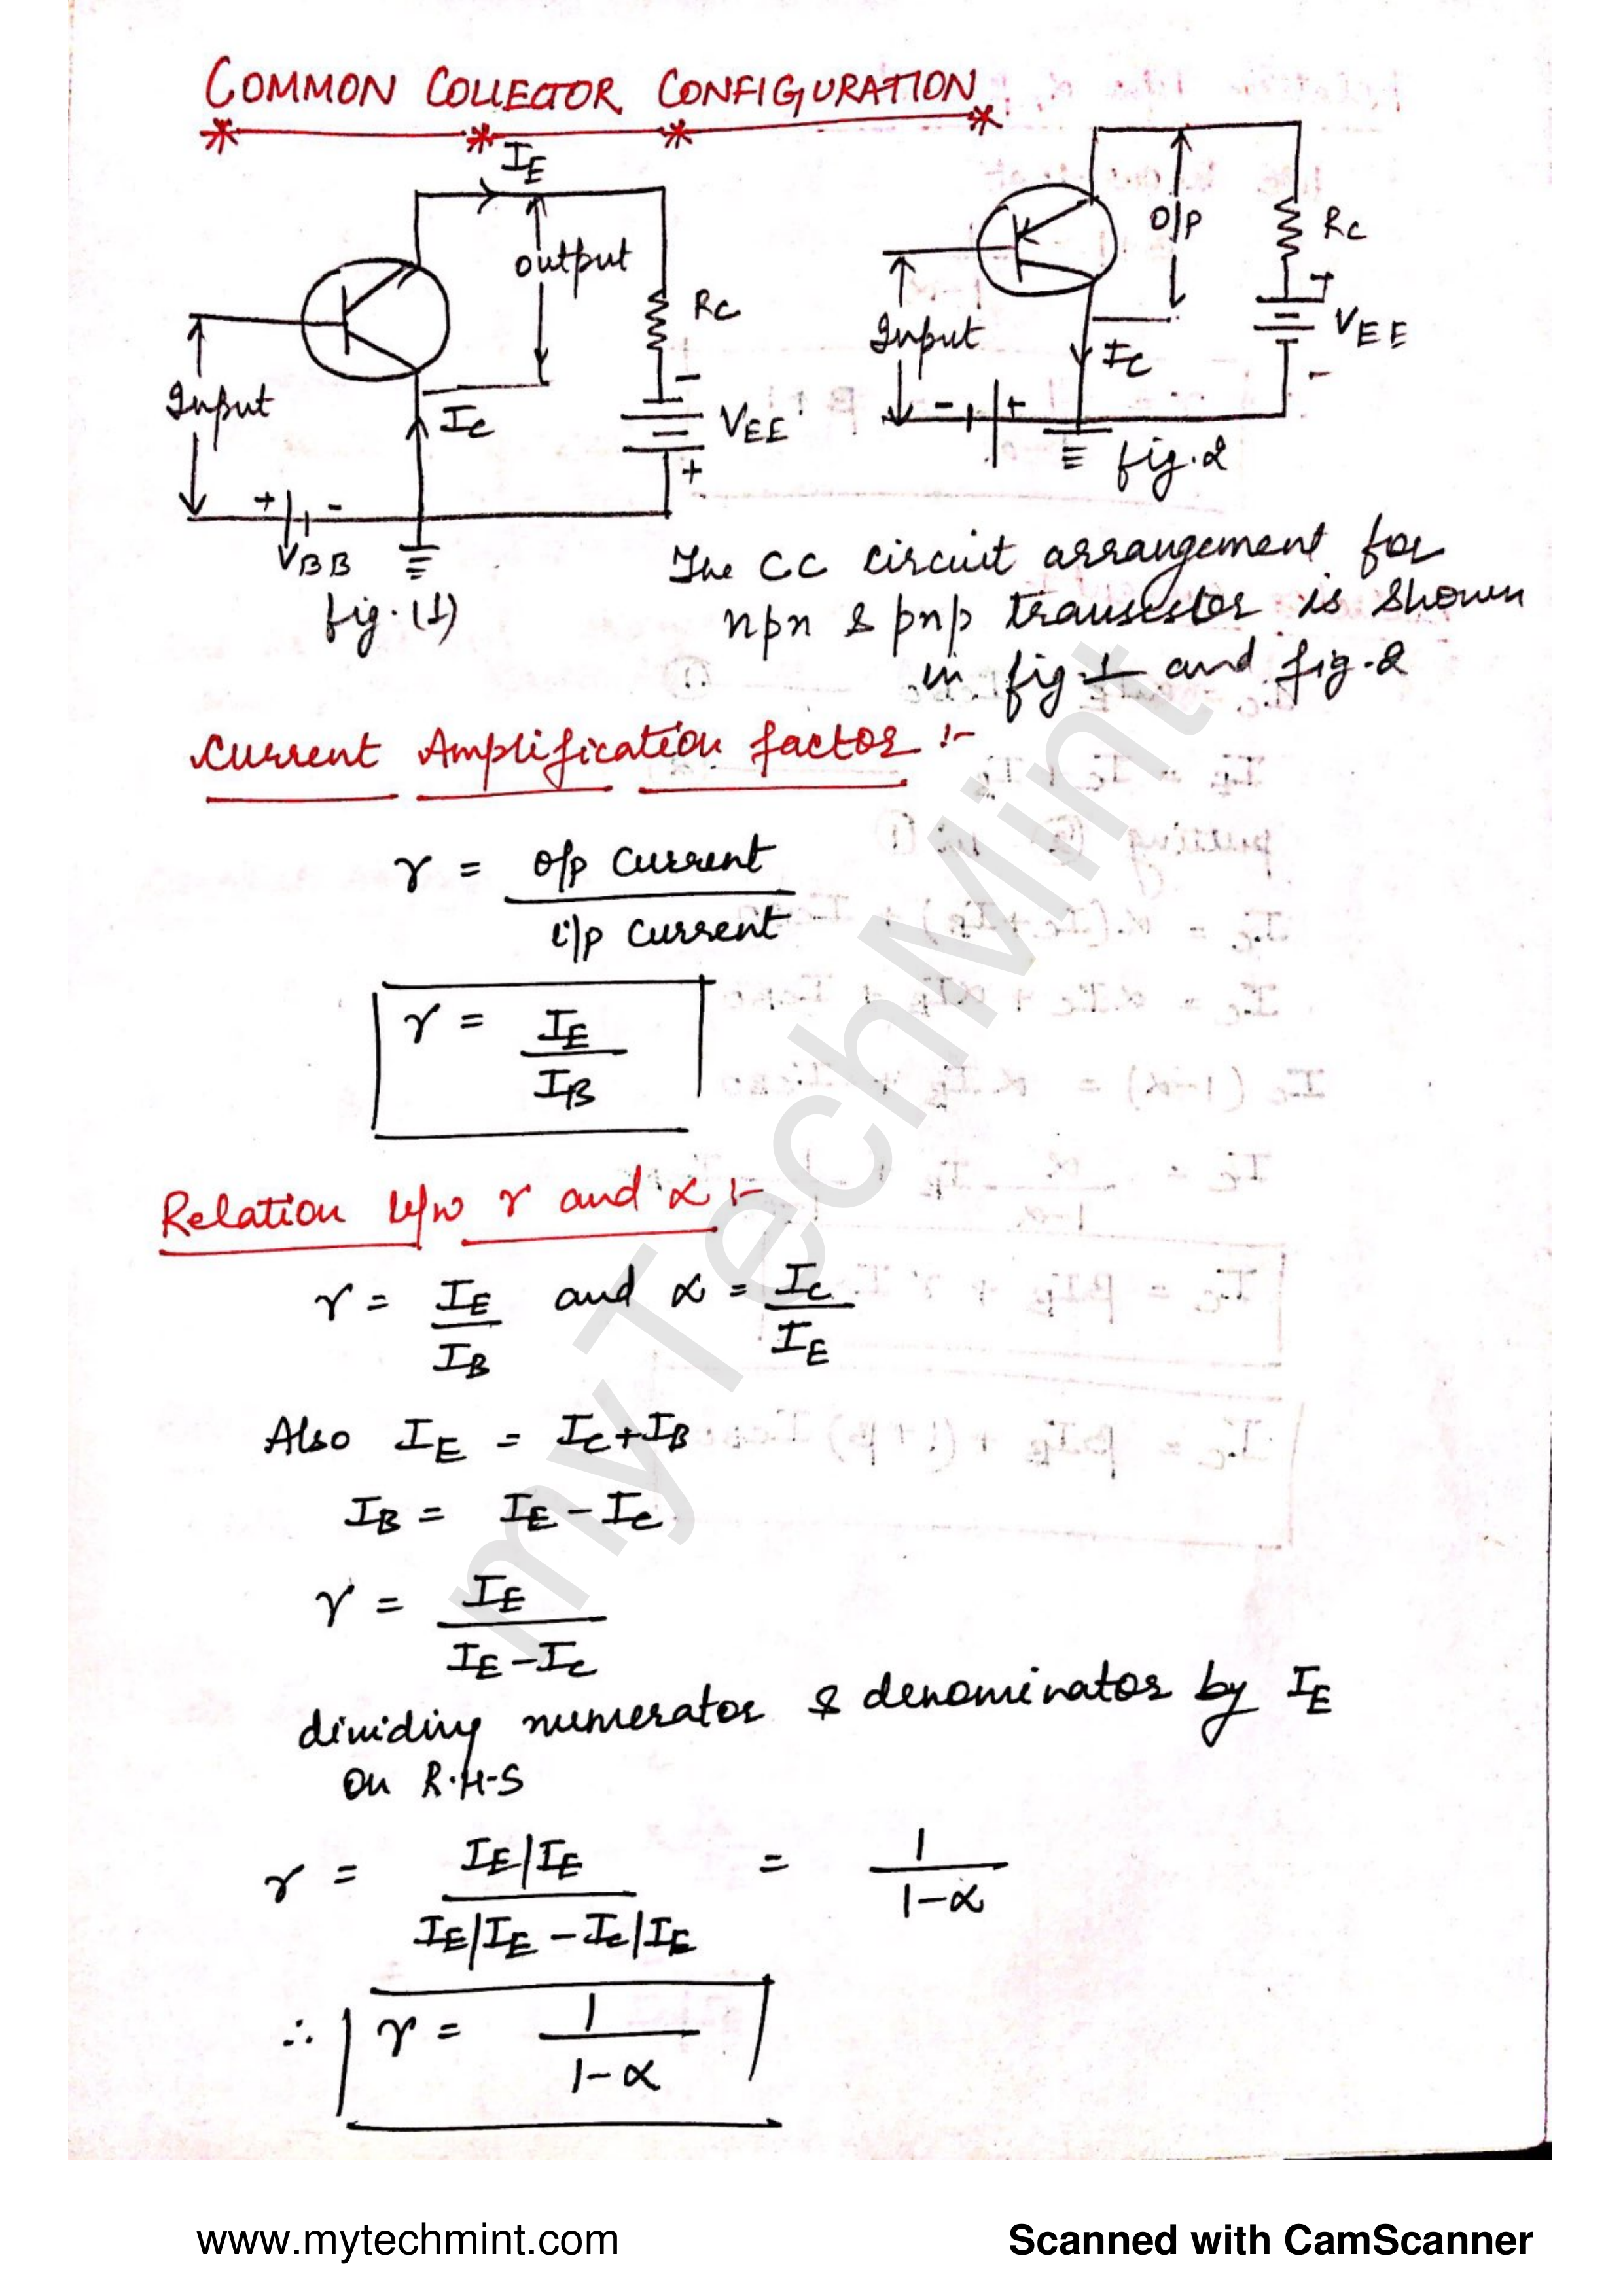 COMMON COLLECTOR CONFIGURATION
IE
output
Input
RC
IC
- VEE +
+ -
VBB
fig.(1)
O/P
RC
Input
+
VEE
-
IC
- +
fig.2
The CC circuit arrangement for
npn & pnp transistor is shown
in fig.1 and fig.2
Current Amplification factor :-
γ = o/p current / i/p current
γ = IE / IB
Relation b/w γ and α :-
γ = IE / IB and α = IC / IE
Also IE = IC+IB
IB = IE-IC
γ = IE / IE-IC
dividing numerator & denominator by IE
on R.H.S
γ = IE/IE / IE/IE - IC/IE = 1 / 1-α
∴ γ = 1 / 1-α
myTechMint
www.mytechmint.com
Scanned with CamScanner